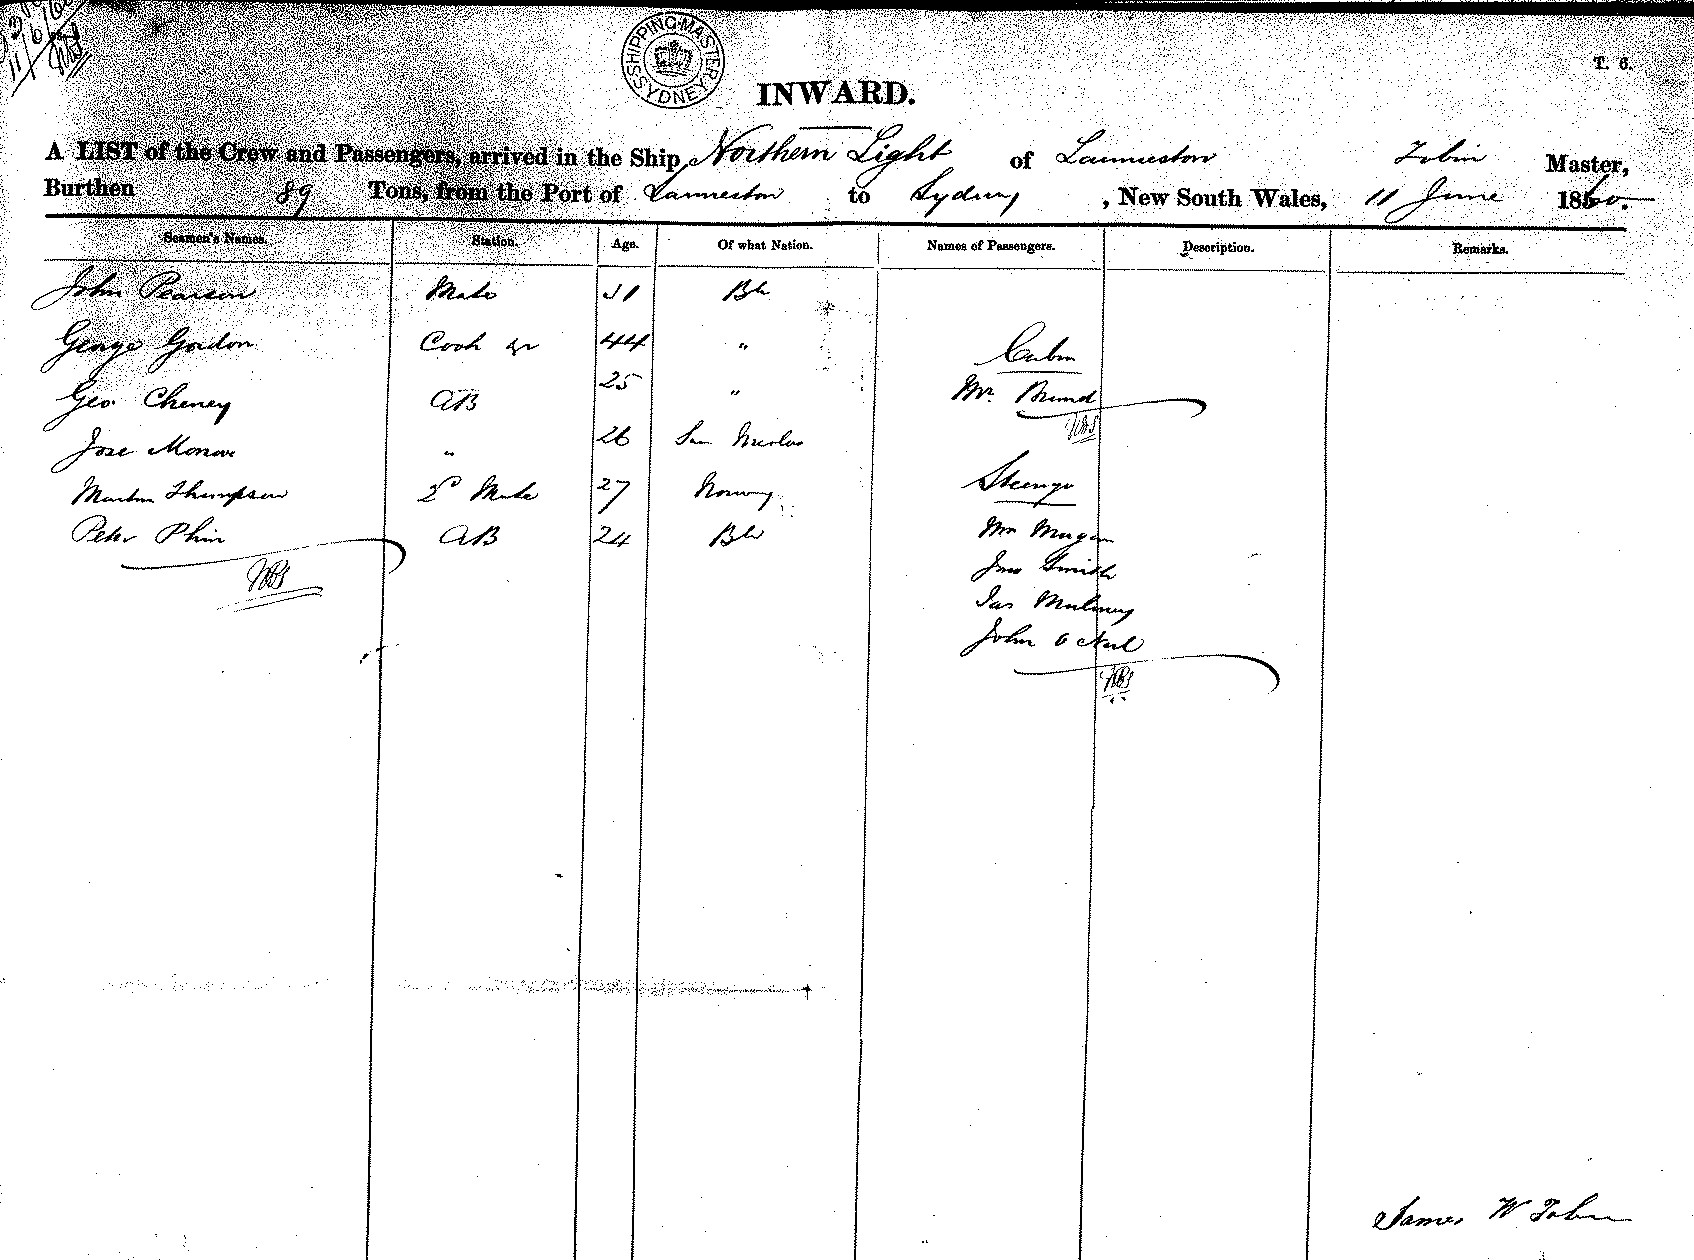 SHIPPING MASTER SYDNEY
T. 6.
INWARD.
A LIST of the Crew and Passengers, arrived in the Ship Northern Light of Launceston Tobin Master,
Burthen 89 Tons, from the Port of Launceston to Sydney, New South Wales, 11 June 1860.
Seamen's Names. Station. Age. Of what Nation. Names of Passengers. Description. Remarks.
John Pearson Mate 31 Bh
George Gordon Cook &c 44 "
Cabin
Geo Cheney AB 25 "
Mr.
Jose " 26 San
Martin Thompson 2d Mate 27 Norway
Steerage
Peter AB 24 Bh
Mr
Jno Smith
Jas
John O Neil
James W Tobin